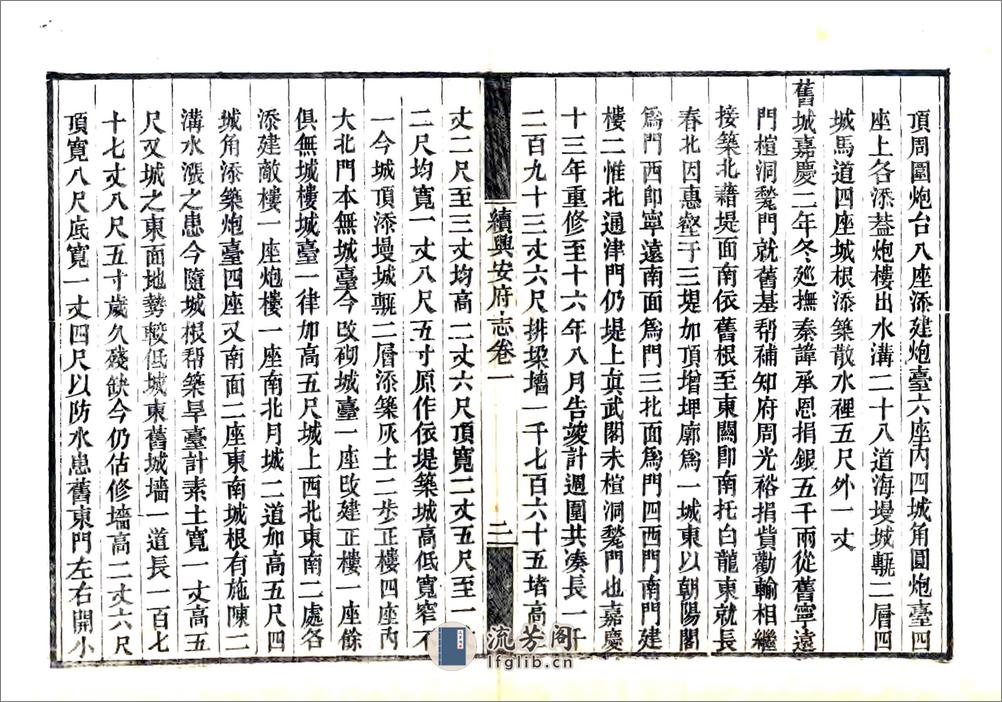 頂周圍炮台八座添建炮臺六座內四城角圓炮臺四
座上各添葢炮樓出水溝二十八道海墁城甎二層四
城馬道四座城根添築散水裡五尺外一丈
舊城嘉慶二年冬廵撫秦諱承恩捐銀五千兩從舊寧遠
門楦洞甃門就舊基帮補知府周光裕捐貲勸輸相繼
接築北藉堤面南依舊根至東關卽南托白龍東就長
春北因惠壑于三堤加頂增埤廓爲一城東以朝陽閣
爲門西卽寧遠南面爲門三北面爲門四西門南門建
樓二惟北通津門仍堤上真武閣未楦洞甃門也嘉慶
十三年重修至十六年八月告竣計週圍共凑長一千
二百九十三丈六尺排垜墻一千七百六十五堵高一
續興安府志卷一
二
丈二尺至三丈均高二丈六尺頂寬二丈五尺至一丈
二尺均寬一丈八尺五寸原作依堤築城高低寬窄不
一今城頂添墁城甎二層添築灰土二步正樓四座內
大北門本無城臺今改砌城臺一座改建正樓一座餘
俱無城樓城臺一律加高五尺城上西北東南二處各
添建敵樓一座炮樓一座南北月城二道加高五尺四
城角添築炮臺四座又南面二座東南城根有施陳二
溝水漲之患今隨城根帮築旱臺計素土寬一丈高五
尺又城之東面地勢較低城東舊城墻一道長一百七
十七丈八尺五寸歲久殘缺今仍估修墻高二丈六尺
頂寬八尺底寬一丈四尺以防水患舊東門左右開小
流芳阁
lfglib.cn